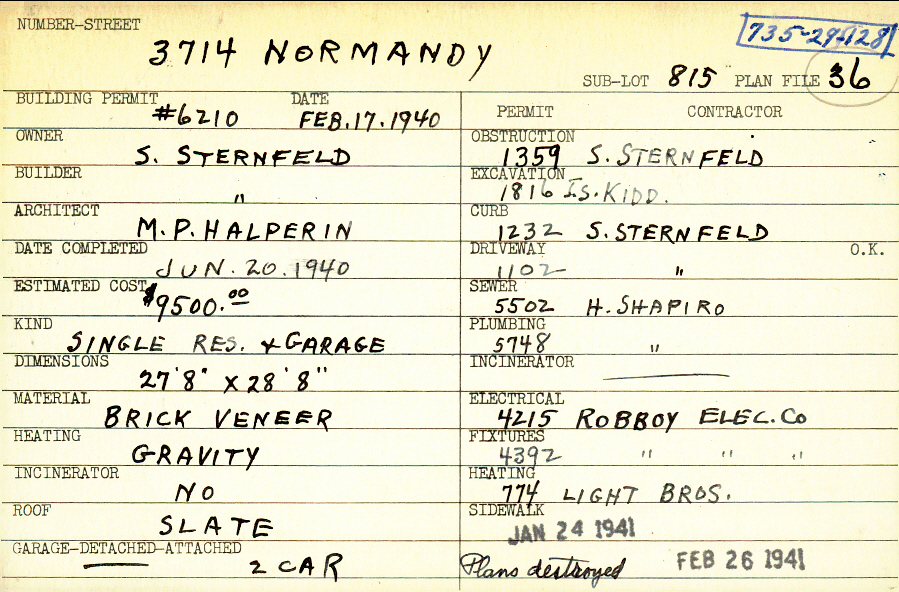 NUMBER-STREET
735-29-128
3714 NORMANDY
SUB-LOT 815 PLAN FILE 36
BUILDING PERMIT DATE
#6210 FEB.17.1940
OWNER
S. STERNFELD
BUILDER
"
ARCHITECT
M.P. HALPERIN
DATE COMPLETED
JUN. 20. 1940
ESTIMATED COST
$9500.00
KIND
SINGLE RES. & GARAGE
DIMENSIONS
27'8" X 28'8"
MATERIAL
BRICK VENEER
HEATING
GRAVITY
INCINERATOR
NO
ROOF
SLATE
GARAGE-DETACHED-ATTACHED
2 CAR
PERMIT CONTRACTOR
OBSTRUCTION
1359 S. STERNFELD
EXCAVATION
1816 I.S. KIDD.
CURB
1232 S. STERNFELD
DRIVEWAY O.K.
1102 "
SEWER
5502 H. SHAPIRO
PLUMBING
5748 "
INCINERATOR
ELECTRICAL
4215 ROBBOY ELEC. Co
FIXTURES
4392 " " "
HEATING
774 LIGHT BROS.
SIDEWALK
JAN 24 1941
Plans destroyed FEB 26 1941